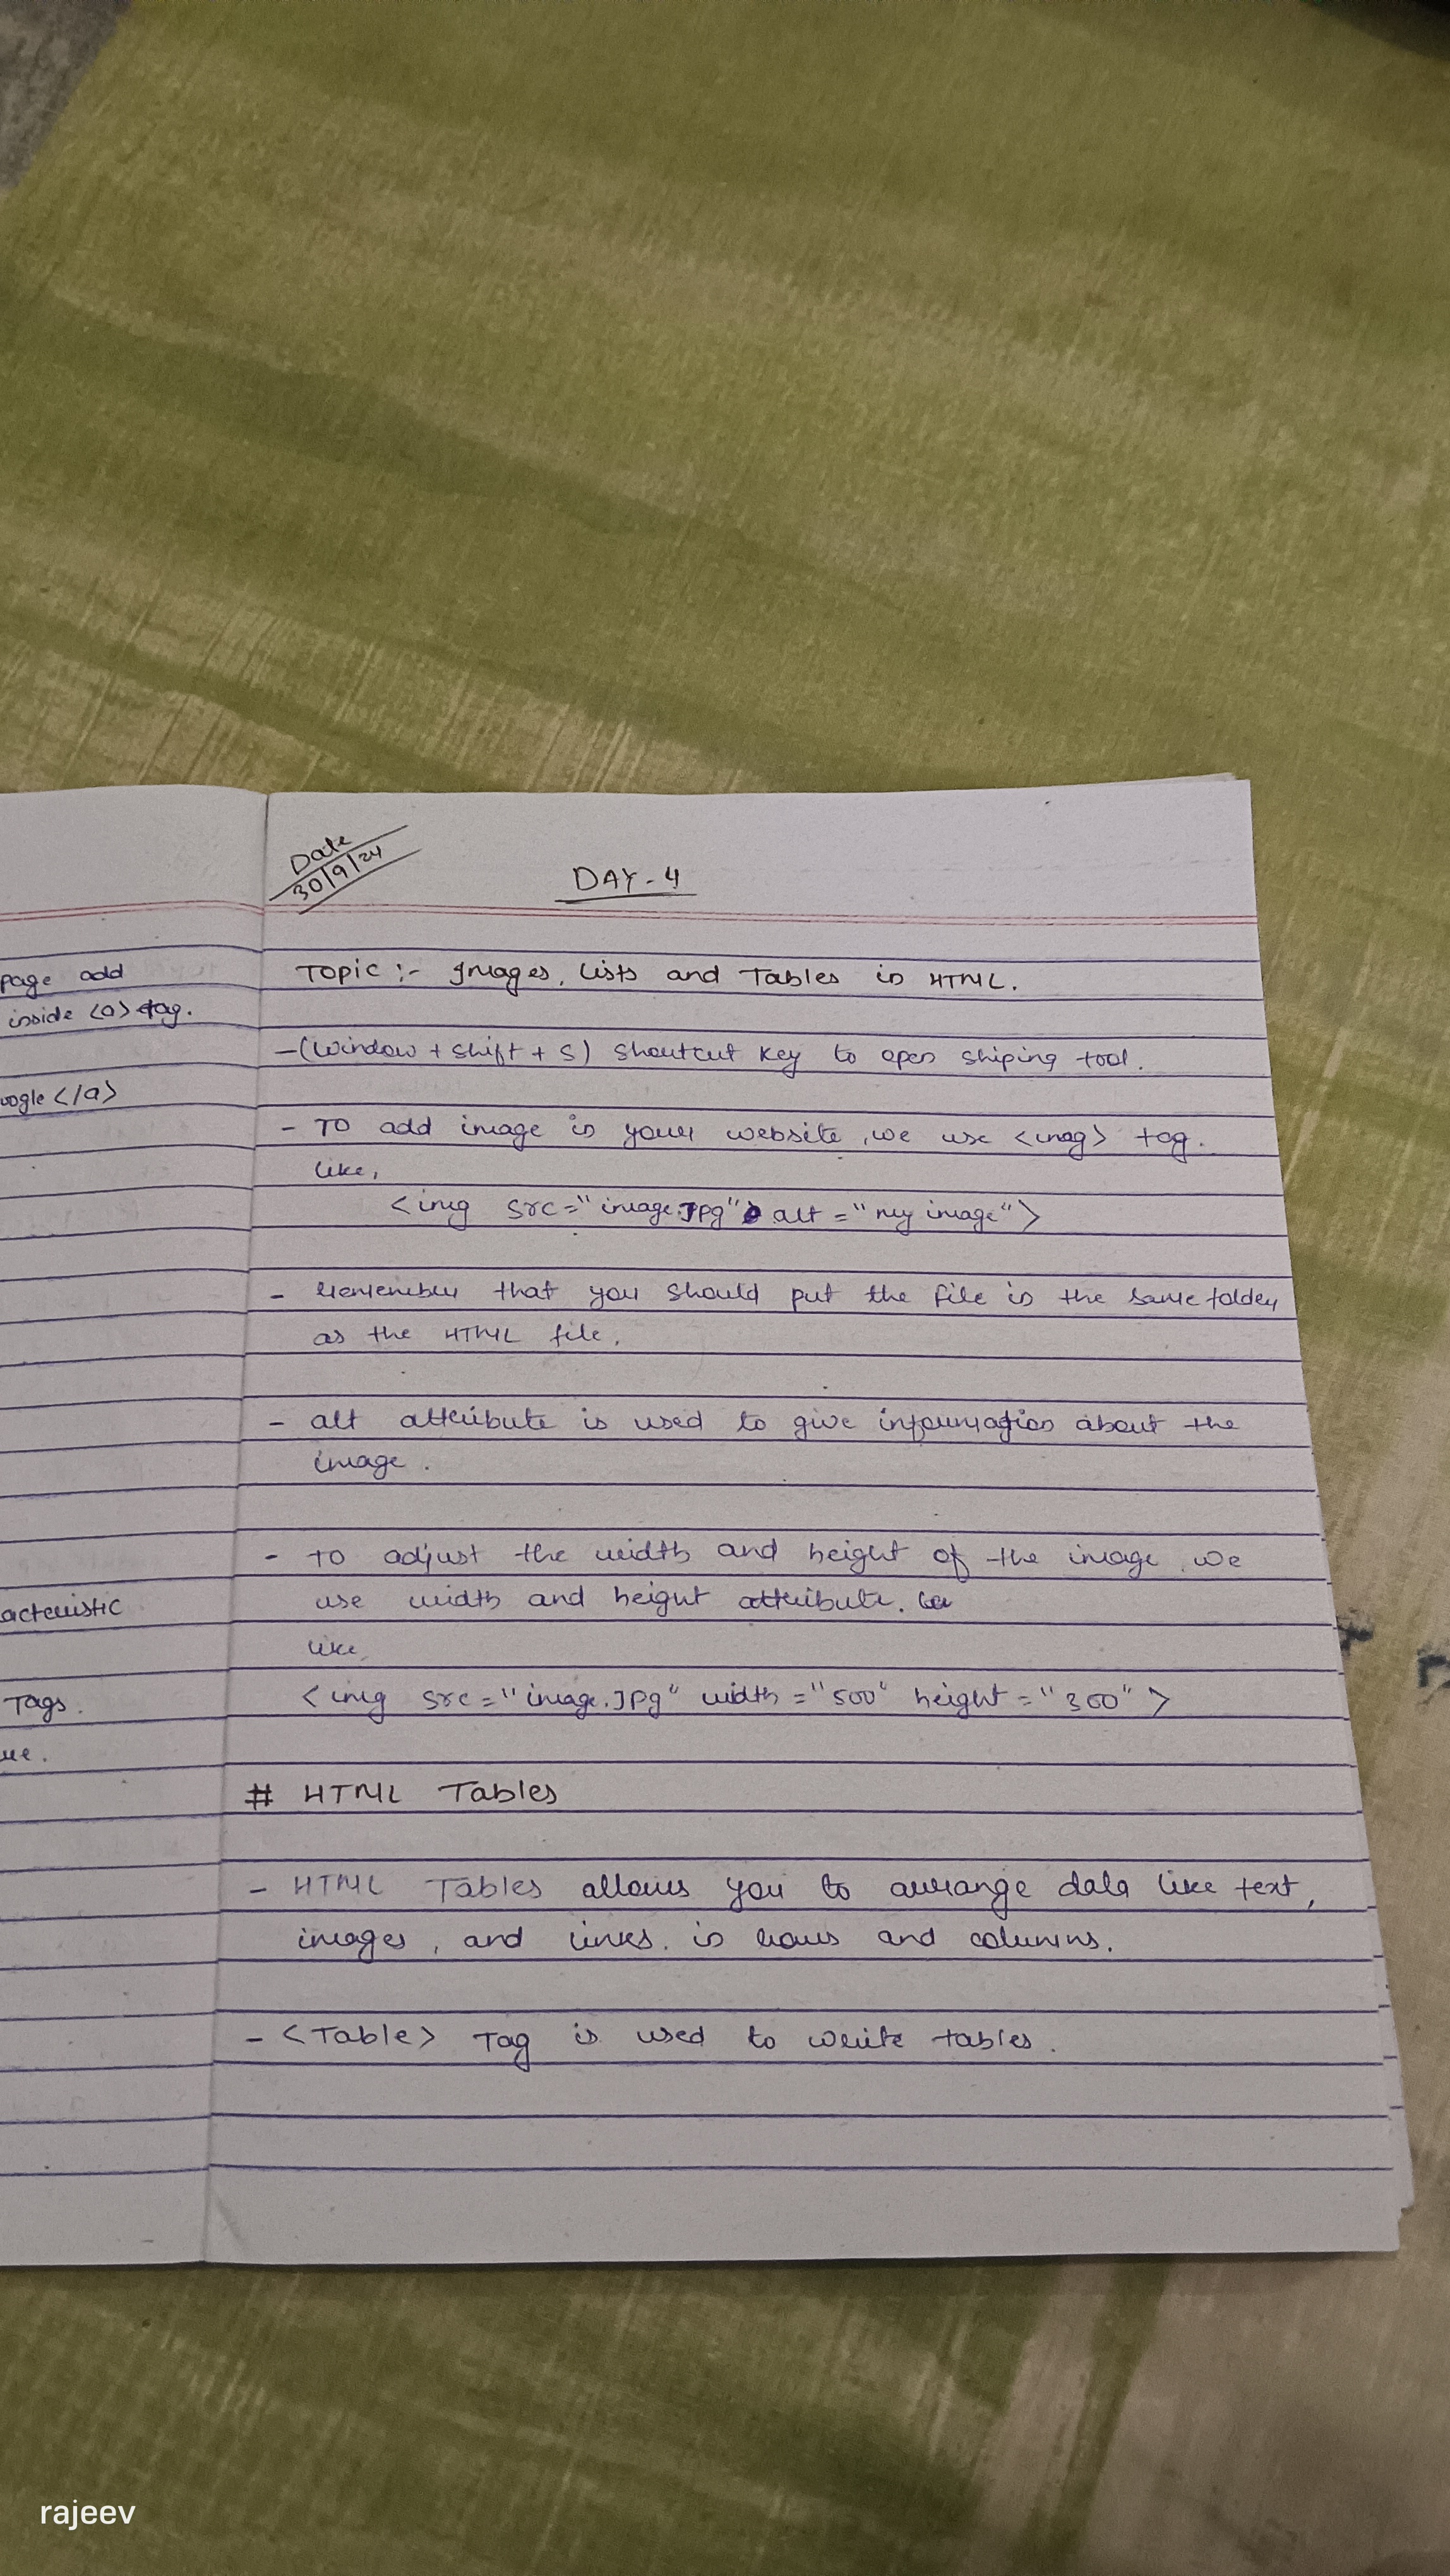 page add
inside <a> tag.
oogle </a>
acteristic
Tags.
ue.
Date
30/9/24
DAY-4
Topic :- Images, Lists and Tables in HTML.
- (Window + Shift + S) Shortcut key to open shiping tool.
- To add image in your website, we use <imag> tag.
like,
<img src="image.Jpg" alt="my image">
- Remember that you should put the file in the same folder
as the HTML file.
- alt attribute is used to give information about the
image.
- To adjust the width and height of the image, we
use width and height attribute.
like
<img src="image.Jpg" width="500" height="300">
# HTML Tables
- HTML Tables allows you to arrange data like text,
images, and links. in rows and columns.
- <Table> Tag is used to write tables.
rajeev